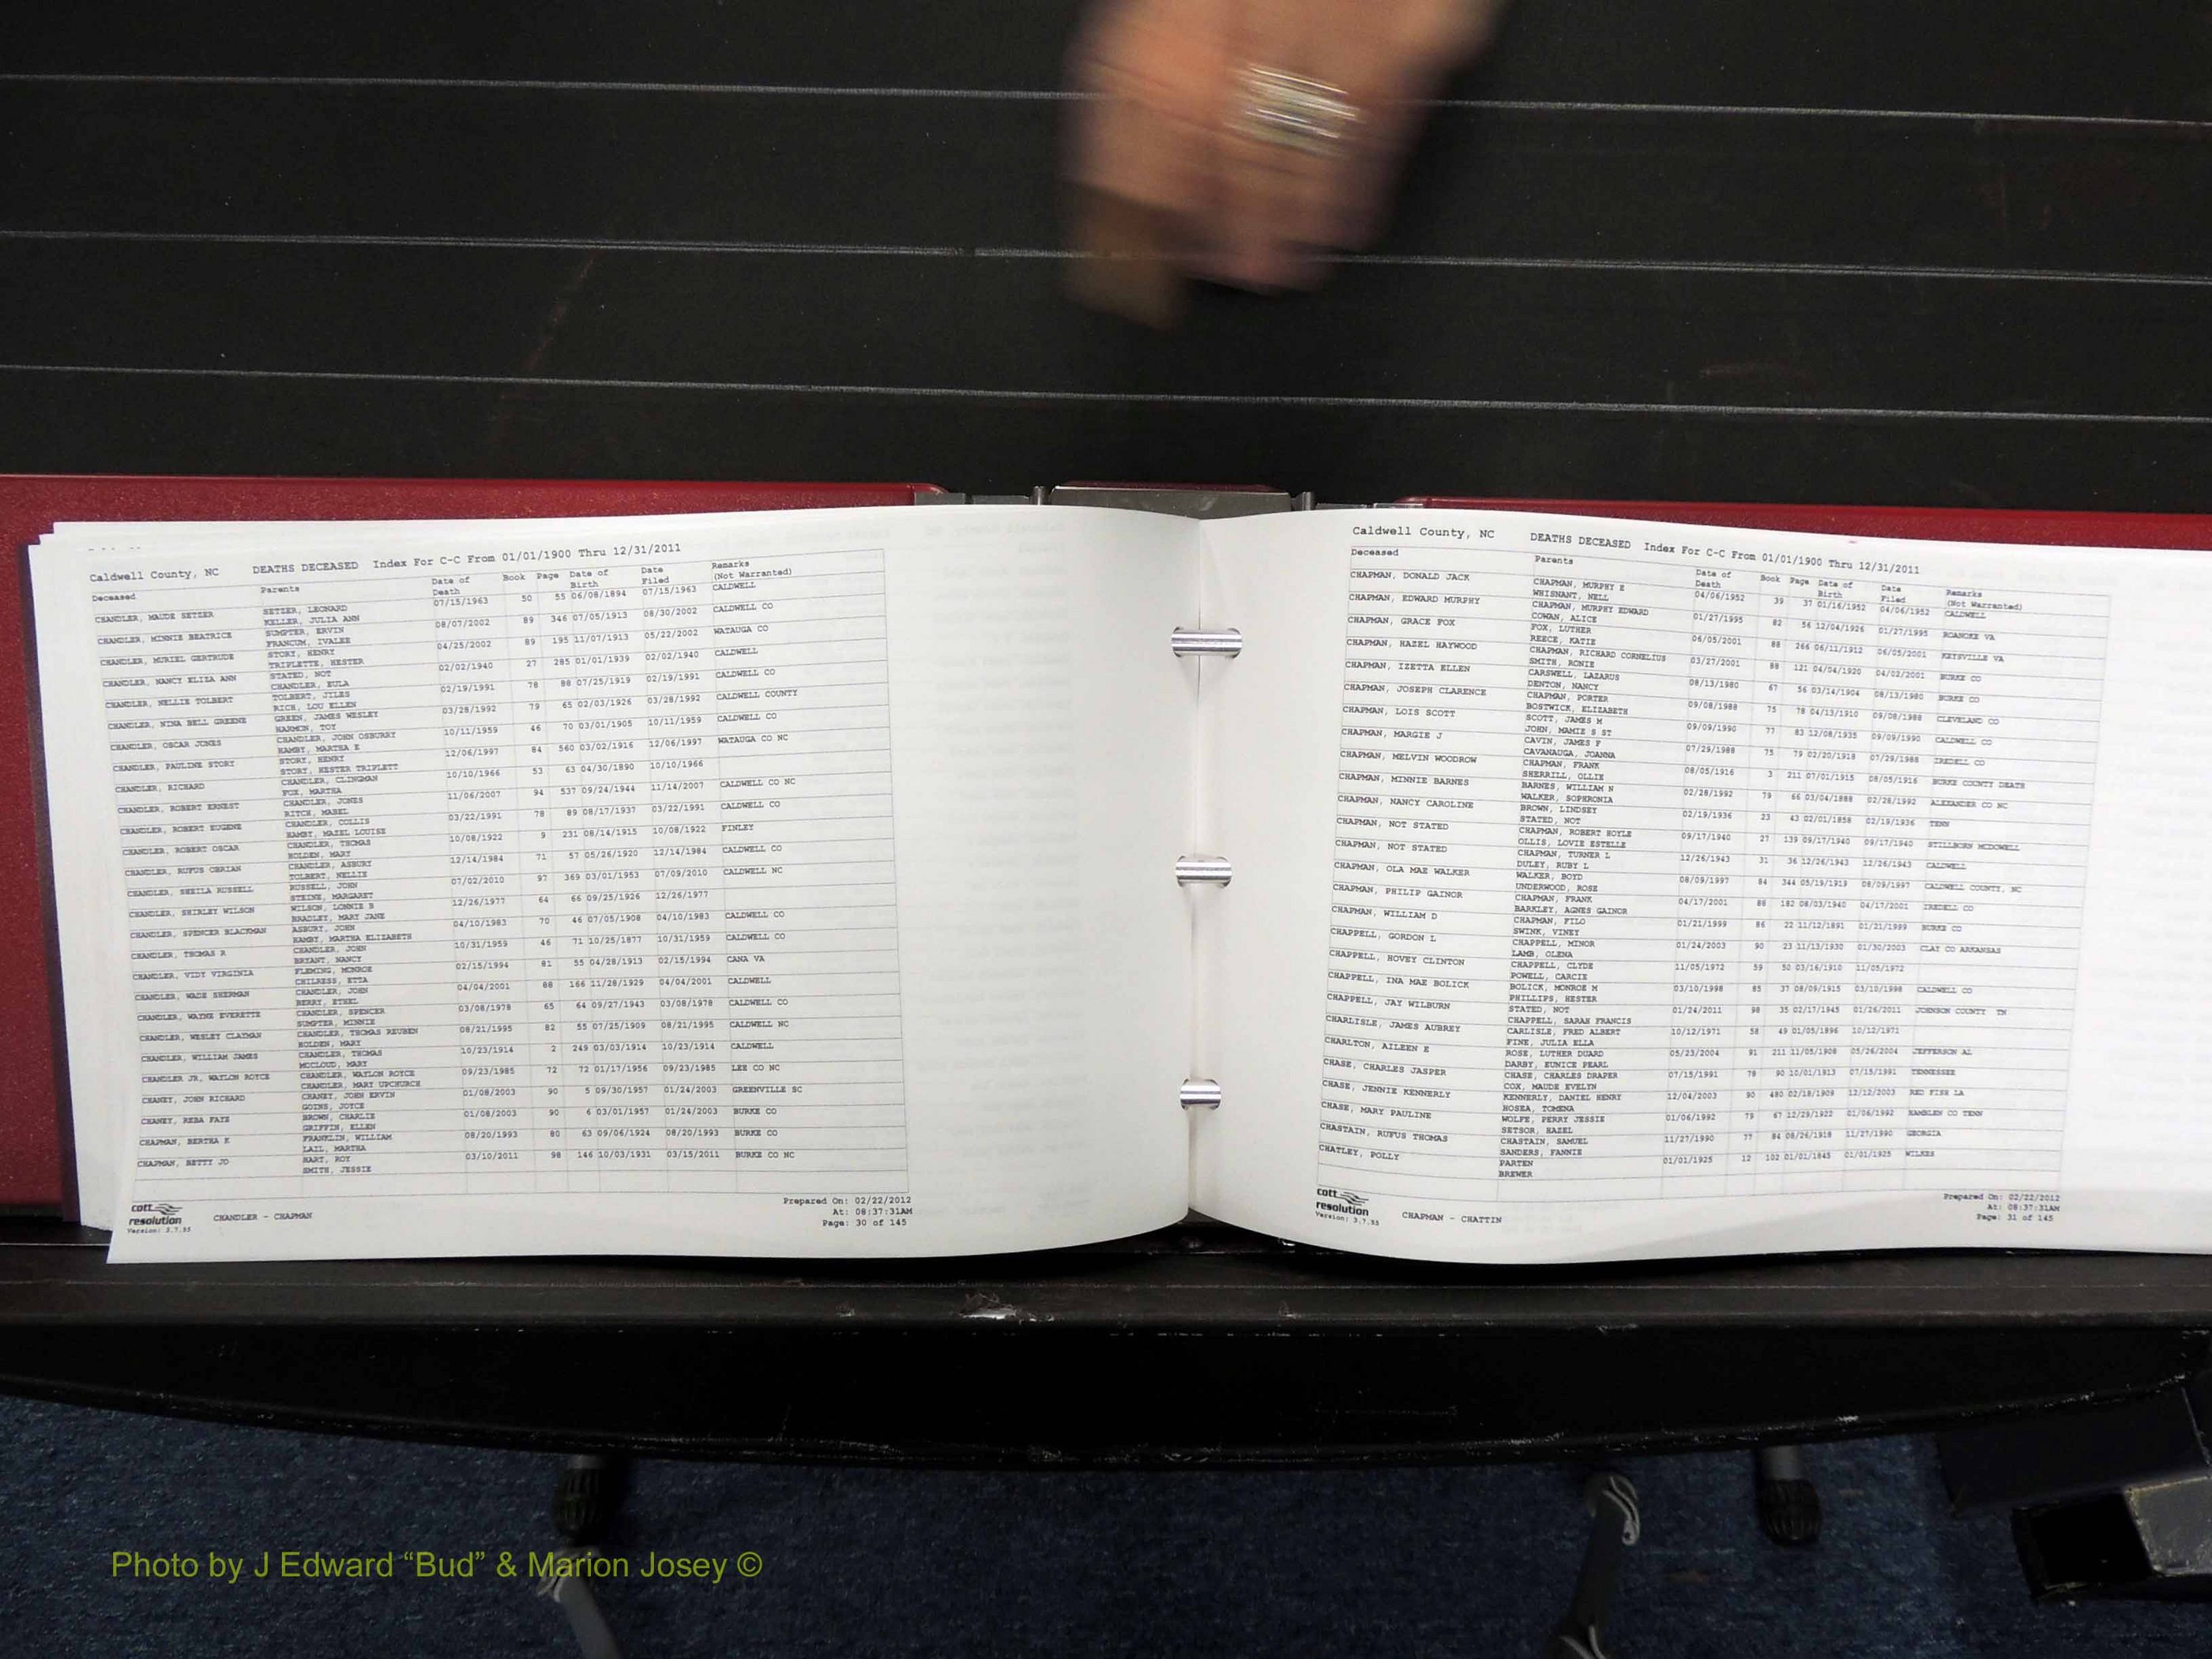 Caldwell County, NC DEATHS DECEASED Index For C-C From 01/01/1900 Thru 12/31/2011
Deceased Parents Date of Death Book Page Date of Birth Date Filed Remarks (Not Warranted)
CHANDLER, MAUDE SETZER SETZER, LEONARD 07/15/1963 50 55 06/08/1894 07/15/1963 CALDWELL
KELLER, JULIA ANN
CHANDLER, MINNIE BEATRICE SUMPTER, ERVIN 08/07/2002 89 346 07/05/1913 08/30/2002 CALDWELL CO
FRANCUM, IVALEE
CHANDLER, MURIEL GERTRUDE STORY, HENRY 04/25/2002 89 195 11/07/1913 05/22/2002 WATAUGA CO
TRIPLETTE, HESTER
CHANDLER, NANCY ELIZA ANN STATED, NOT 02/02/1940 27 285 01/01/1939 02/02/1940 CALDWELL
CHANDLER, EULA
CHANDLER, NELLIE TOLBERT TOLBERT, JILES 02/19/1991 78 88 07/25/1919 02/19/1991 CALDWELL CO
RICH, LOU ELLEN
CHANDLER, NINA BELL GREENE GREEN, JAMES WESLEY 03/28/1992 79 65 02/03/1926 03/28/1992 CALDWELL COUNTY
HARMON, TOY
CHANDLER, OSCAR JONES CHANDLER, JOHN OSBURRY 10/11/1959 46 70 03/01/1905 10/11/1959 CALDWELL CO
HAMBY, MARTHA E
CHANDLER, PAULINE STORY STORY, HENRY 12/06/1997 84 560 03/02/1916 12/06/1997 WATAUGA CO NC
STORY, HESTER TRIPLETT
CHANDLER, RICHARD CHANDLER, CLINGMAN 10/10/1966 53 63 04/30/1890 10/10/1966
FOX, MARTHA
CHANDLER, ROBERT ERNEST CHANDLER, JONES 11/06/2007 94 537 09/24/1944 11/14/2007 CALDWELL CO NC
RITCH, MABEL
CHANDLER, ROBERT EUGENE CHANDLER, COLLIS 03/22/1991 78 89 08/17/1937 03/22/1991 CALDWELL CO
HAMBY, HAZEL LOUISE
CHANDLER, ROBERT OSCAR CHANDLER, THOMAS 10/08/1922 9 231 08/14/1915 10/08/1922 FINLEY
HOLDEN, MARY
CHANDLER, RUFUS OBRIAN CHANDLER, ASBURY 12/14/1984 71 57 05/26/1920 12/14/1984 CALDWELL CO
TOLBERT, NELLIE
CHANDLER, SHEILA RUSSELL RUSSELL, JOHN 07/02/2010 97 369 03/01/1953 07/09/2010 CALDWELL NC
STEINE, MARGARET
CHANDLER, SHIRLEY WILSON WILSON, LONNIE B 12/26/1977 64 66 09/25/1926 12/26/1977
BRADLEY, MARY JANE
CHANDLER, SPENCER BLACKMAN ASBURY, JOHN 04/10/1983 70 46 07/05/1908 04/10/1983 CALDWELL CO
HAMBY, MARTHA ELIZABETH
CHANDLER, THOMAS R CHANDLER, JOHN 10/31/1959 46 71 10/25/1877 10/31/1959 CALDWELL CO
BRYANT, NANCY
CHANDLER, VIDY VIRGINIA FLEMING, MONROE 02/15/1994 81 55 04/28/1913 02/15/1994 CANA VA
CHILRESS, ETTA
CHANDLER, WADE SHERMAN CHANDLER, JOHN 04/04/2001 88 166 11/28/1929 04/04/2001 CALDWELL
BERRY, ETHEL
CHANDLER, WAYNE EVERETTE CHANDLER, SPENCER 03/08/1978 65 64 09/27/1943 03/08/1978 CALDWELL CO
SUMPTER, MINNIE
CHANDLER, WESLEY CLAYMAN CHANDLER, THOMAS REUBEN 08/21/1995 82 55 07/25/1909 08/21/1995 CALDWELL NC
HOLDEN, MARY
CHANDLER, WILLIAM JAMES CHANDLER, THOMAS 10/23/1914 2 249 03/03/1914 10/23/1914 CALDWELL
MCCLOUD, MARY
CHANDLER JR, WAYLON ROYCE CHANDLER, WAYLON ROYCE 09/23/1985 72 72 01/17/1956 09/23/1985 LEE CO NC
CHANDLER, MARY UPCHURCH
CHANEY, JOHN RICHARD CHANEY, JOHN ERVIN 01/08/2003 90 5 09/30/1957 01/24/2003 GREENVILLE SC
GOINS, JOYCE
CHANEY, REBA FAYE BROWN, CHARLIE 01/08/2003 90 6 03/01/1957 01/24/2003 BURKE CO
GRIFFIN, ELLEN
CHAPMAN, BERTHA K FRANKLIN, WILLIAM 08/20/1993 80 63 09/06/1924 08/20/1993 BURKE CO
LAIL, MARTHA
CHAPMAN, BETTY JO HART, ROY 03/10/2011 98 146 10/03/1931 03/15/2011 BURKE CO NC
SMITH, JESSIE
cott
resolution
Version: 3.7.55
CHANDLER - CHAPMAN
Prepared On: 02/22/2012
At: 08:37:31AM
Page: 30 of 145
Caldwell County, NC DEATHS DECEASED Index For C-C From 01/01/1900 Thru 12/31/2011
Deceased Parents Date of Death Book Page Date of Birth Date Filed Remarks (Not Warranted)
CHAPMAN, DONALD JACK CHAPMAN, MURPHY E 04/06/1952 39 37 01/16/1952 04/06/1952 CALDWELL
WHISNANT, NELL
CHAPMAN, EDWARD MURPHY CHAPMAN, MURPHY EDWARD 01/27/1995 82 56 12/04/1926 01/27/1995 ROANOKE VA
COWAN, ALICE
CHAPMAN, GRACE FOX FOX, LUTHER 06/05/2001 88 266 06/11/1912 06/05/2001 KEYSVILLE VA
REECE, KATIE
CHAPMAN, HAZEL HAYWOOD CHAPMAN, RICHARD CORNELIUS 03/27/2001 88 121 04/04/1920 04/02/2001 BURKE CO
SMITH, RONIE
CHAPMAN, IZETTA ELLEN CARSWELL, LAZARUS 08/13/1980 67 56 03/14/1904 08/13/1980 BURKE CO
DENTON, NANCY
CHAPMAN, JOSEPH CLARENCE CHAPMAN, PORTER 09/08/1988 75 78 04/13/1910 09/08/1988 CLEVELAND CO
BOSTWICK, ELIZABETH
CHAPMAN, LOIS SCOTT SCOTT, JAMES M 09/09/1990 77 83 12/08/1935 09/09/1990 CALDWELL CO
JOHN, MAMIE S ST
CHAPMAN, MARGIE J CAVIN, JAMES F 07/29/1988 75 79 02/20/1918 07/29/1988 IREDELL CO
CAVANAUGA, JOANNA
CHAPMAN, MELVIN WOODROW CHAPMAN, FRANK 08/05/1916 3 211 07/01/1915 08/05/1916 BURKE COUNTY DEATH
SHERRILL, OLLIE
CHAPMAN, MINNIE BARNES BARNES, WILLIAM N 02/28/1992 79 66 03/04/1888 02/28/1992 ALEXANDER CO NC
WALKER, SOPHRONIA
CHAPMAN, NANCY CAROLINE BROWN, LINDSEY 02/19/1936 23 43 02/01/1858 02/19/1936 TENN
STATED, NOT
CHAPMAN, NOT STATED CHAPMAN, ROBERT HOYLE 09/17/1940 27 139 09/17/1940 09/17/1940 STILLBORN MCDOWELL
OLLIS, LOVIE ESTELLE
CHAPMAN, NOT STATED CHAPMAN, TURNER L 12/26/1943 31 36 12/26/1943 12/26/1943 CALDWELL
DULEY, RUBY L
CHAPMAN, OLA MAE WALKER WALKER, BOYD 08/09/1997 84 344 05/19/1919 08/09/1997 CALDWELL COUNTY, NC
UNDERWOOD, ROSE
CHAPMAN, PHILIP GAINOR CHAPMAN, FRANK 04/17/2001 88 182 08/03/1940 04/17/2001 IREDELL CO
BARKLEY, AGNES GAINOR
CHAPMAN, WILLIAM D CHAPMAN, FILO 01/21/1999 86 22 11/12/1891 01/21/1999 BURKE CO
SWINK, VINEY
CHAPPELL, GORDON L CHAPPELL, MINOR 01/24/2003 90 23 11/13/1930 01/30/2003 CLAY CO ARKANSAS
LAMB, OLENA
CHAPPELL, HOVEY CLINTON CHAPPELL, CLYDE 11/05/1972 59 50 03/16/1910 11/05/1972
POWELL, CARCIE
CHAPPELL, INA MAE BOLICK BOLICK, MONROE M 03/10/1998 85 37 08/09/1915 03/10/1998 CALDWELL CO
PHILLIPS, HESTER
CHAPPELL, JAY WILBURN STATED, NOT 01/24/2011 98 35 02/17/1945 01/26/2011 JOHNSON COUNTY TN
CHAPPELL, SARAH FRANCIS
CHARLISLE, JAMES AUBREY CARLISLE, FRED ALBERT 10/12/1971 58 49 01/05/1896 10/12/1971
FINE, JULIA ELLA
CHARLTON, AILEEN E ROSE, LUTHER DUARD 05/23/2004 91 211 11/05/1908 05/26/2004 JEFFERSON AL
DARBY, EUNICE PEARL
CHASE, CHARLES JASPER CHASE, CHARLES DRAPER 07/15/1991 78 90 10/01/1913 07/15/1991 TENNESSEE
COX, MAUDE EVELYN
CHASE, JENNIE KENNERLY KENNERLY, DANIEL HENRY 12/04/2003 90 480 02/18/1909 12/12/2003 RED FISH LA
HOSEA, TOMENA
CHASE, MARY PAULINE WOLFE, PERRY JESSIE 01/06/1992 79 67 12/29/1922 01/06/1992 HAMBLEN CO TENN
SETSOR, HAZEL
CHASTAIN, RUFUS THOMAS CHASTAIN, SAMUEL 11/27/1990 77 84 08/26/1918 11/27/1990 GEORGIA
SANDERS, FANNIE
CHATLEY, POLLY PARTEN 01/01/1925 12 102 01/01/1845 01/01/1925 WILKES
BREWER
cott
resolution
Version: 3.7.55
CHAPMAN - CHATTIN
Prepared On: 02/22/2012
At: 08:37:31AM
Page: 31 of 145
Photo by J Edward “Bud” & Marion Josey ©